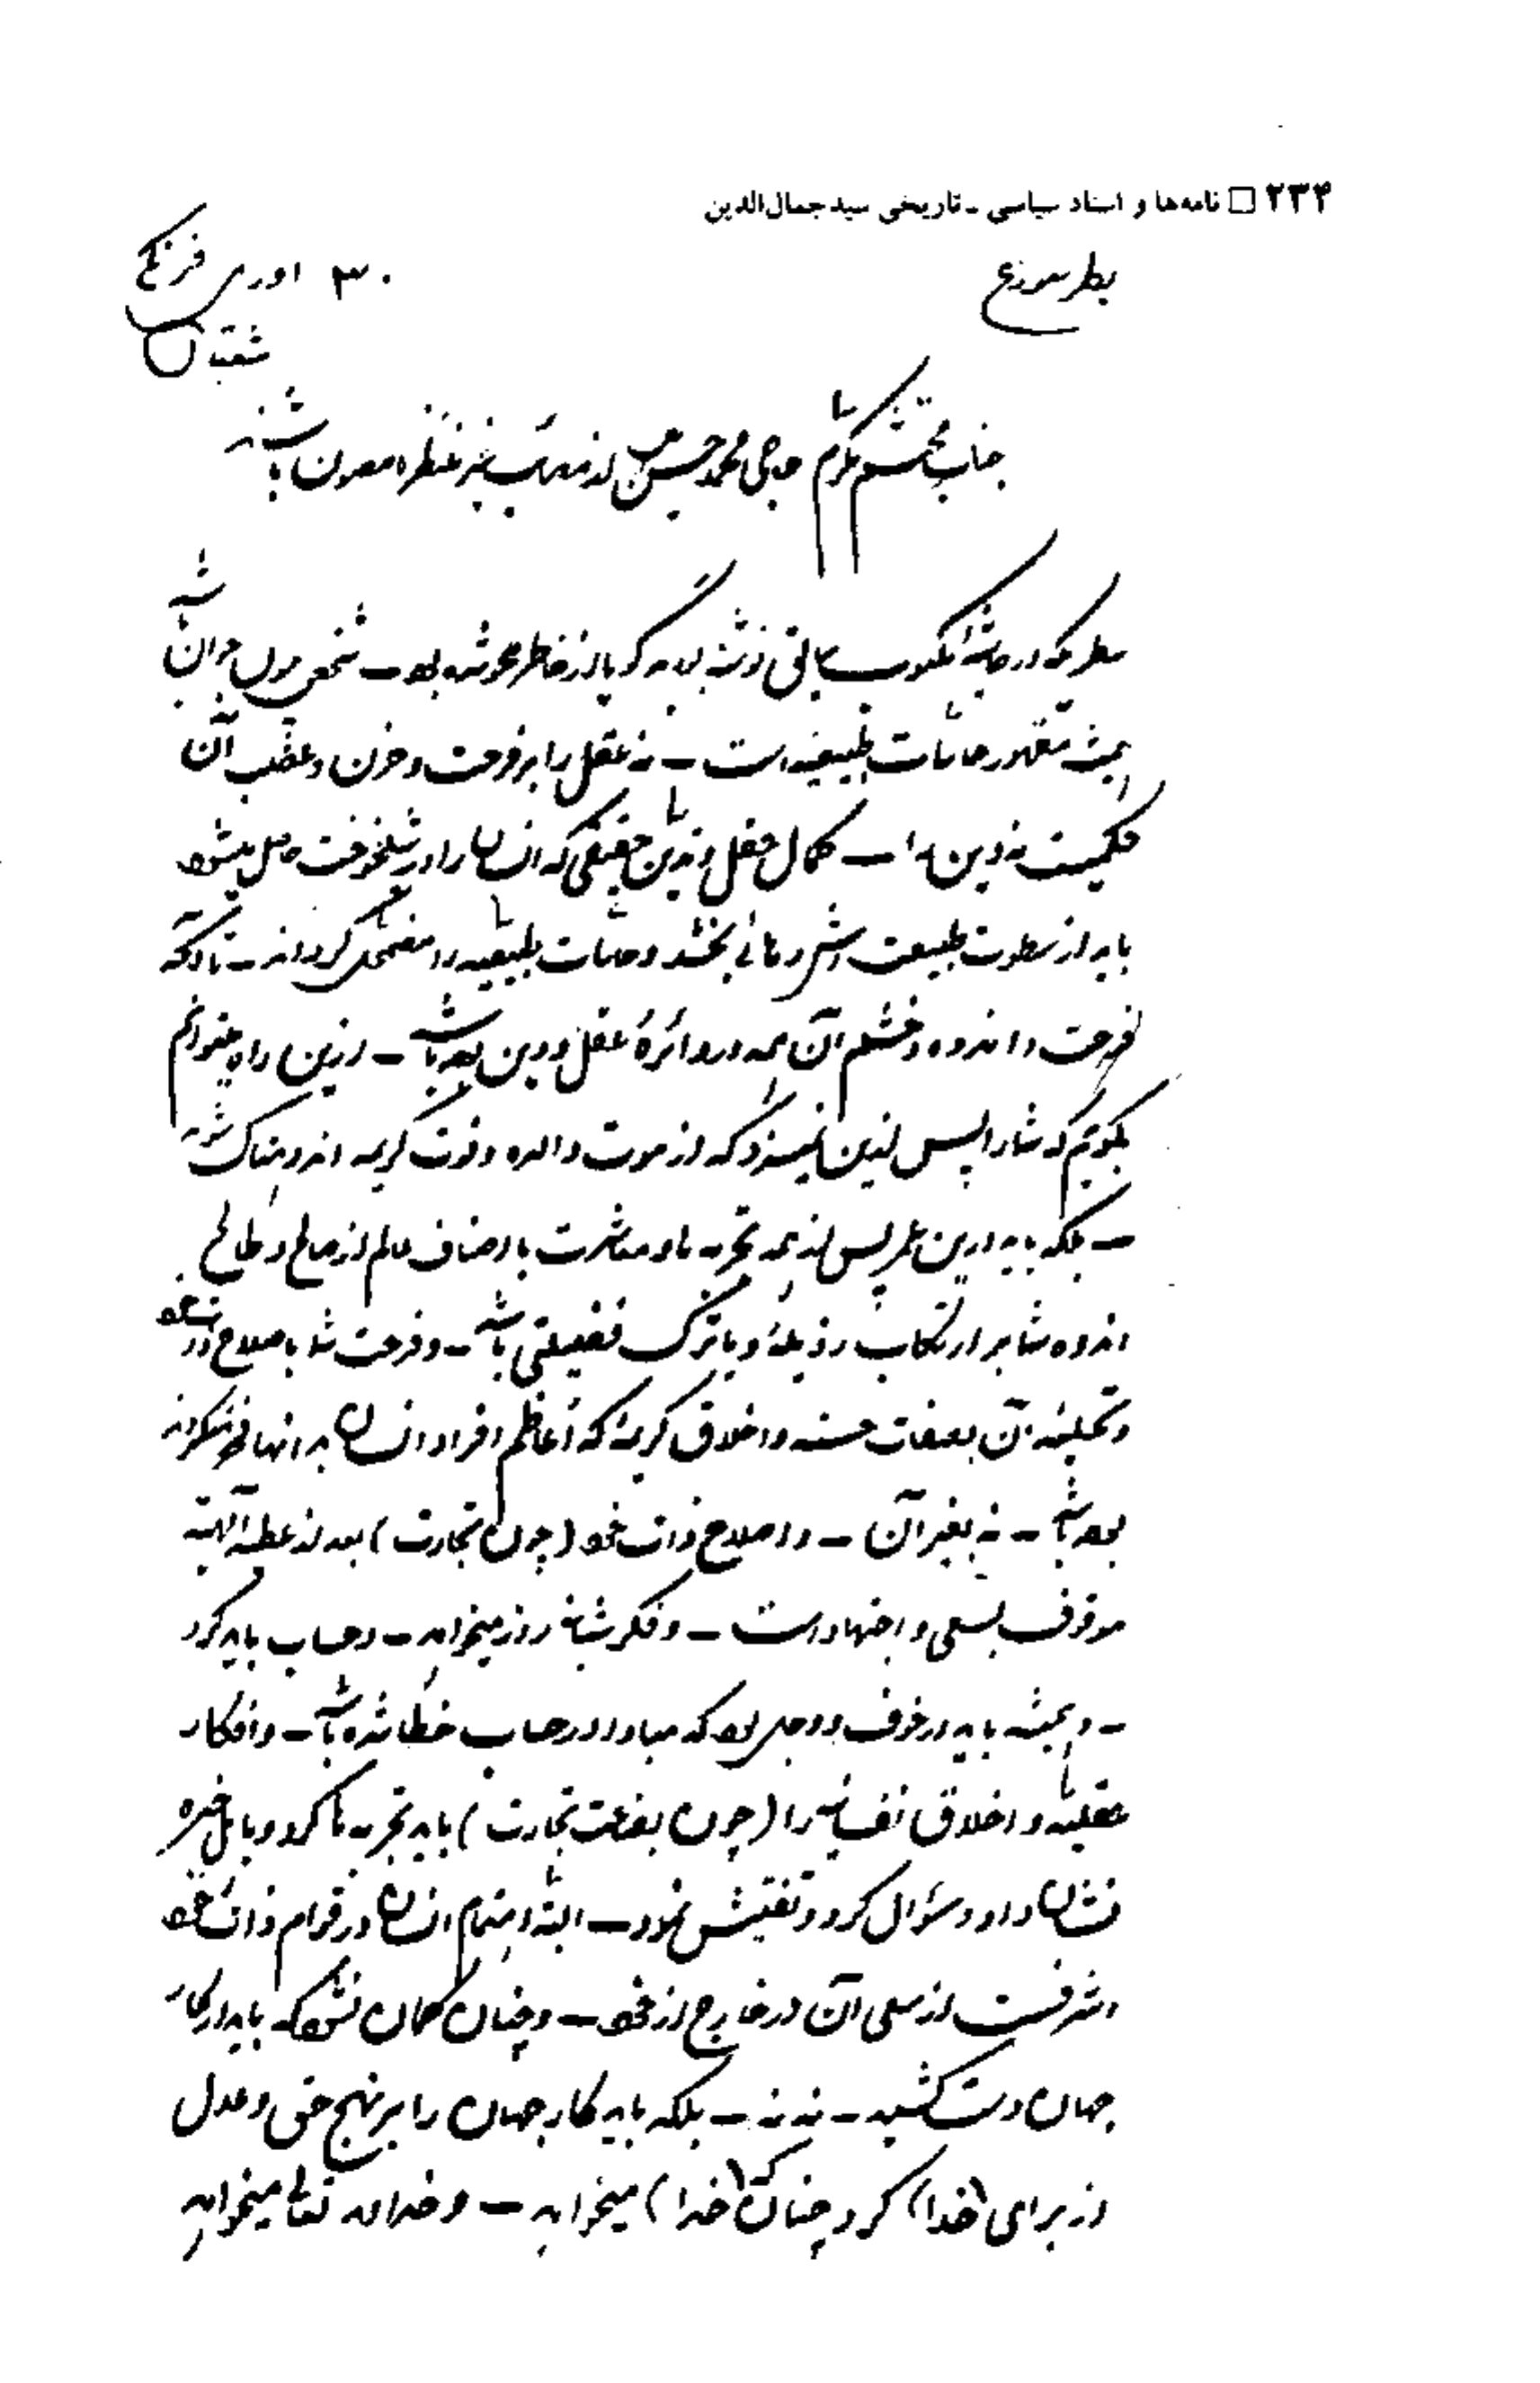 ۲۳۴ □ نامه‌ها و اسناد سیاسی ـ تاریخی سید جمال‌الدین
۳۰
جناب محتشم مکرم حاجی محمد حسن از مصائب غیر منتظره مصون باشند
سطریکه در حاشیهٔ مکتوب سابق نوشته بودید گویا از خاطر محو شده بود ـ شخص چون جوان باشد
همیشه مقهور حاسات طبیعیه است ـ نه عقل را بر فرحت و حزن و غضب آن
حکمیست نه دین را ـ کمال عقل و تدین حقیقی که انسان را در شیخوخت حاصل میشود
باید از سطوت طبیعت اش رهائی بخشد و حاسات طبیعیه را مضمحل گرداند ـ تا آنکه
فرحت و اندوه و خشم آن همه در دائرهٔ عقل و دین بوده باشد ـ ازین راه میتوانم
بگویم که شما را پس ازین نمیسزد که از موت والده و فوت کریمه اندوهناک شوید
ـ بلکه باید درین عمر پس از همه تجربه ها و معاشرت با اصناف عالم از صالح و طالح
اندوه شما بر ارتکاب رذیلهٔ و یا ترک فضیلتی باشد ـ و فرحت شما باصلاح ذات خود
و تحلیهٔ آن بصفات حسنه و اخلاق کریمهٔ که اعاظم افراد انسان بدانها فخر میکردند
بوده باشد ـ نه بغیر آن ـ و اصلاح ذات خود (چون تجارت) بعد از عطیهٔ آلهیه
موقوف بسعی و اجتهاد است ـ و فکر شبانه روز میخواهد ـ و حساب باید کرد
ـ و همیشه باید در خوف و وجل بود که مبادا در حساب خطا شده باشد ـ و افکار
عقلیه و اخلاق نفسانیه را (چون بضاعت تجارت) باید تجربه ها کرد و باهل خبره
نشان داد و سؤال کرد و تفتیش نمود ـ البته اهتمام انسان در قوام ذات خود
اشرفست از سعی آن در خارج از خود ـ و چنان گمان نشود که باید از کار
جهان دست کشید ـ نه نه ـ بلکه باید کار جهان را بر نهج حق و عدل
از برای (خدا) کرد چنانکه (خدا) میخواهد ـ و خداوند تعالی میخواهد